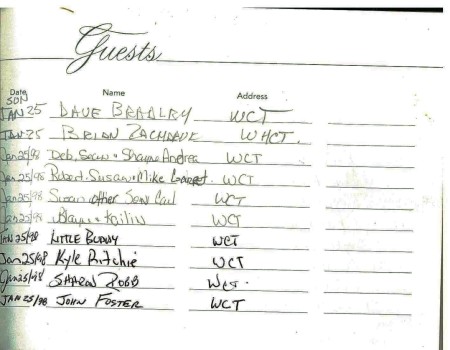 Guests
Date Name Address
SUN
JAN 25 DAVE BRADLEY WCT
JAN 25 BRIAN WHCT.
Jan 25/98 Deb, Sean + Shayne Andrea WCT
Jan 25/98 Robert, Susan + Mike WCT
Jan 25/98 Susan other Sean Carl WCT
Jan 25/98 Blayne + Kailin WCT
JAN 25/98 LITTLE BUDDY WCT
Jan 25/98 Kyle Ritchie WCT
Jan 25/98 SHARON ROBB WCT.
JAN 25/98 JOHN FOSTER WCT